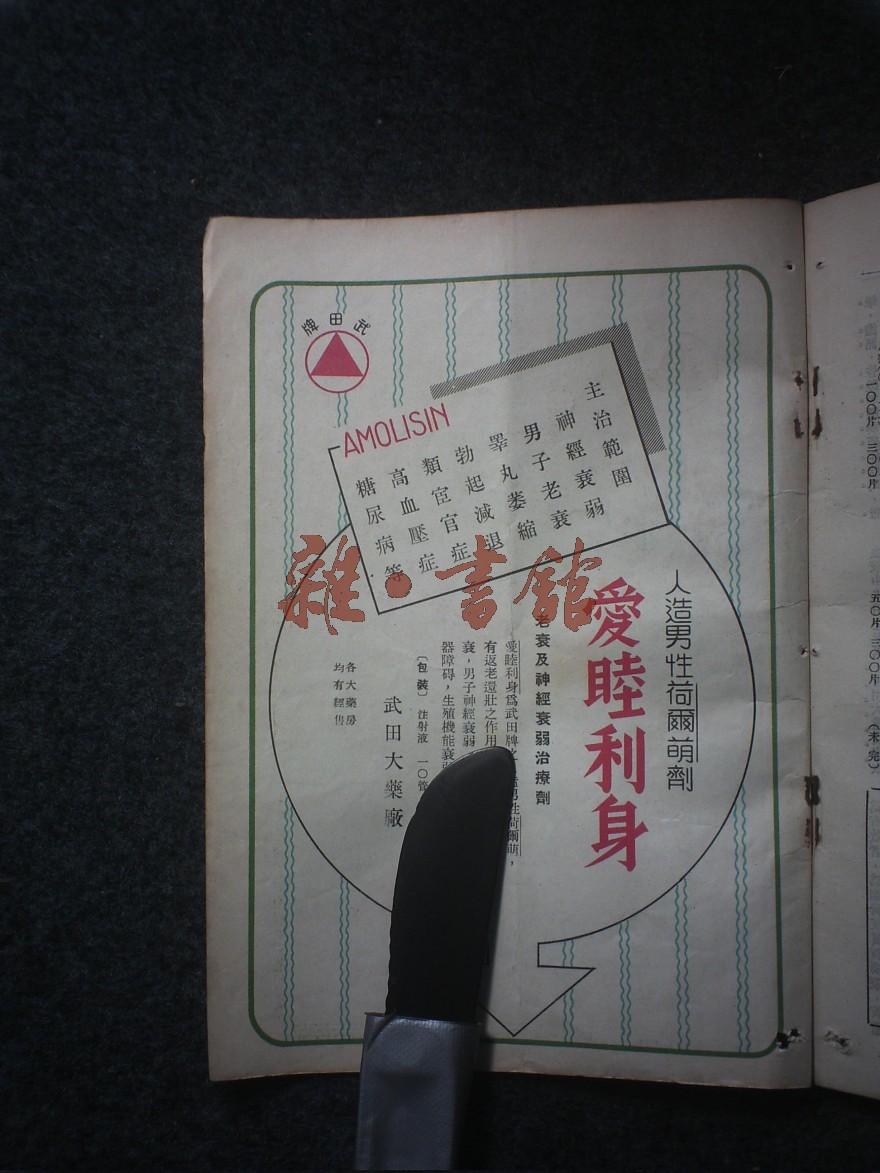 武田牌
AMOLISIN
主治範圍
神經衰弱
男子老衰
睪丸萎縮
勃起減退
類宦官症
高血壓症
糖尿病等
人造男性荷爾萌劑
愛睦利身
老衰及神經衰弱治療劑
愛睦利身為武田牌之 男性荷爾萌，
有返老還壯之作用
衰，男子神經衰弱
器障碍，生殖機能衰
〔包裝〕 注射液 一〇管
武田大藥廠
各大藥房
均有經售
雜·書館
一〇〇片 三〇〇片
五〇片 三〇〇片
（未完）